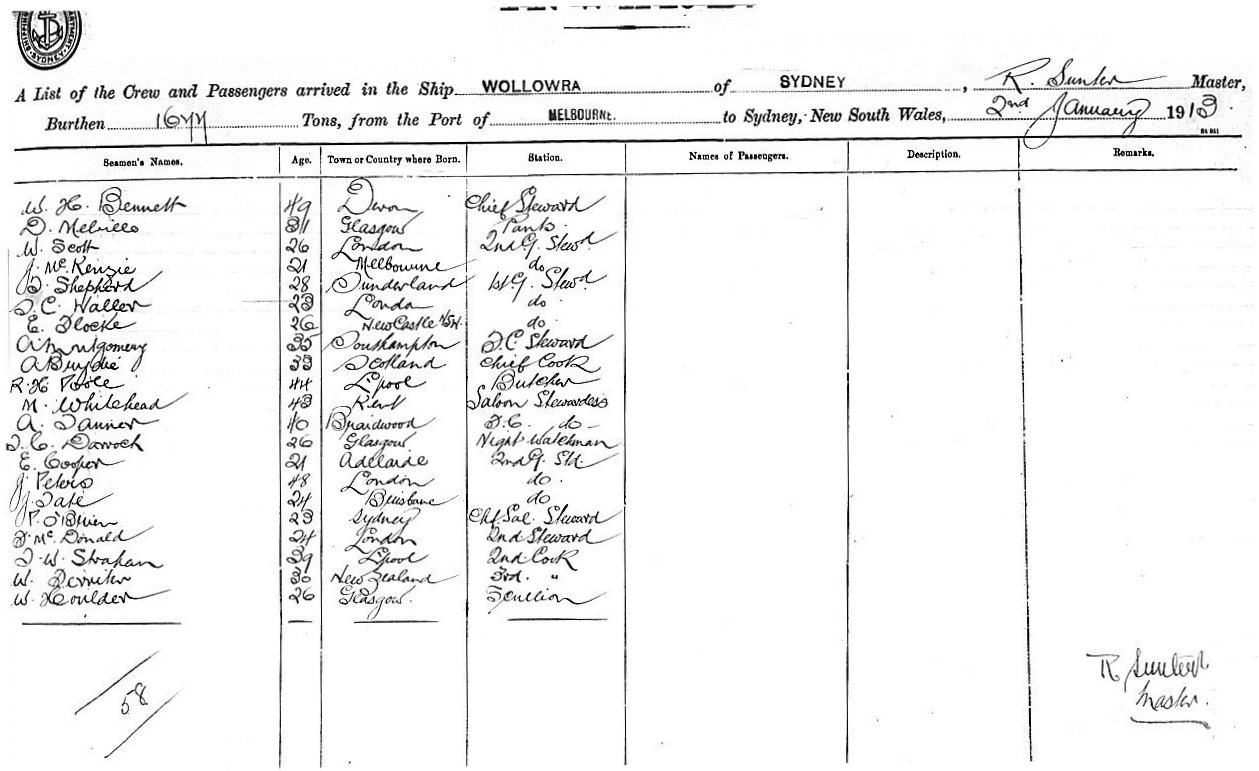 SYDNEY
A List of the Crew and Passengers arrived in the Ship WOLLOWRA of SYDNEY, R. Sunter Master,
Burthen 1677 Tons, from the Port of MELBOURNE. to Sydney, New South Wales, 2nd January 1913
Seamen's Names. Age. Town or Country where Born. Station. Names of Passengers. Description. Remarks.
W. H. Bennett 49 Devon Chief Steward
D. Melville 31 Glasgow Pants.
W. Scott 26 London 2nd G. Stewd
J. McKenzie 21 Melbourne do
D. Shepherd 28 Sunderland 1st G. Stewd
T. C. Waller 23 London do
E. Flocke 26 New Castle NSW. do.
A Montgomery 35 Southampton F.C. Steward
A 33 Scotland Chief Cook
R. H Poole 44 L'pool Butcher
M. Whitehead 43 Kent Saloon Stewardess
A. Tanner 40 Braidwood F.C. do
T. C. Darroch 26 Glasgow Night Watchman
E. Cooper 21 Adelaide 2nd G. Std.
J. Peters 48 London do.
J. Tate 24 Brisbane do
P. O'Brien 23 Sydney Chf. Sal. Steward
F. McDonald 24 London 2nd Steward
T. W. Strahan 39 L'pool 2nd Cook
W. 30 New Zealand 3rd. "
W. Houlder 26 Glasgow. Scullion
58
R Sunter
Master.